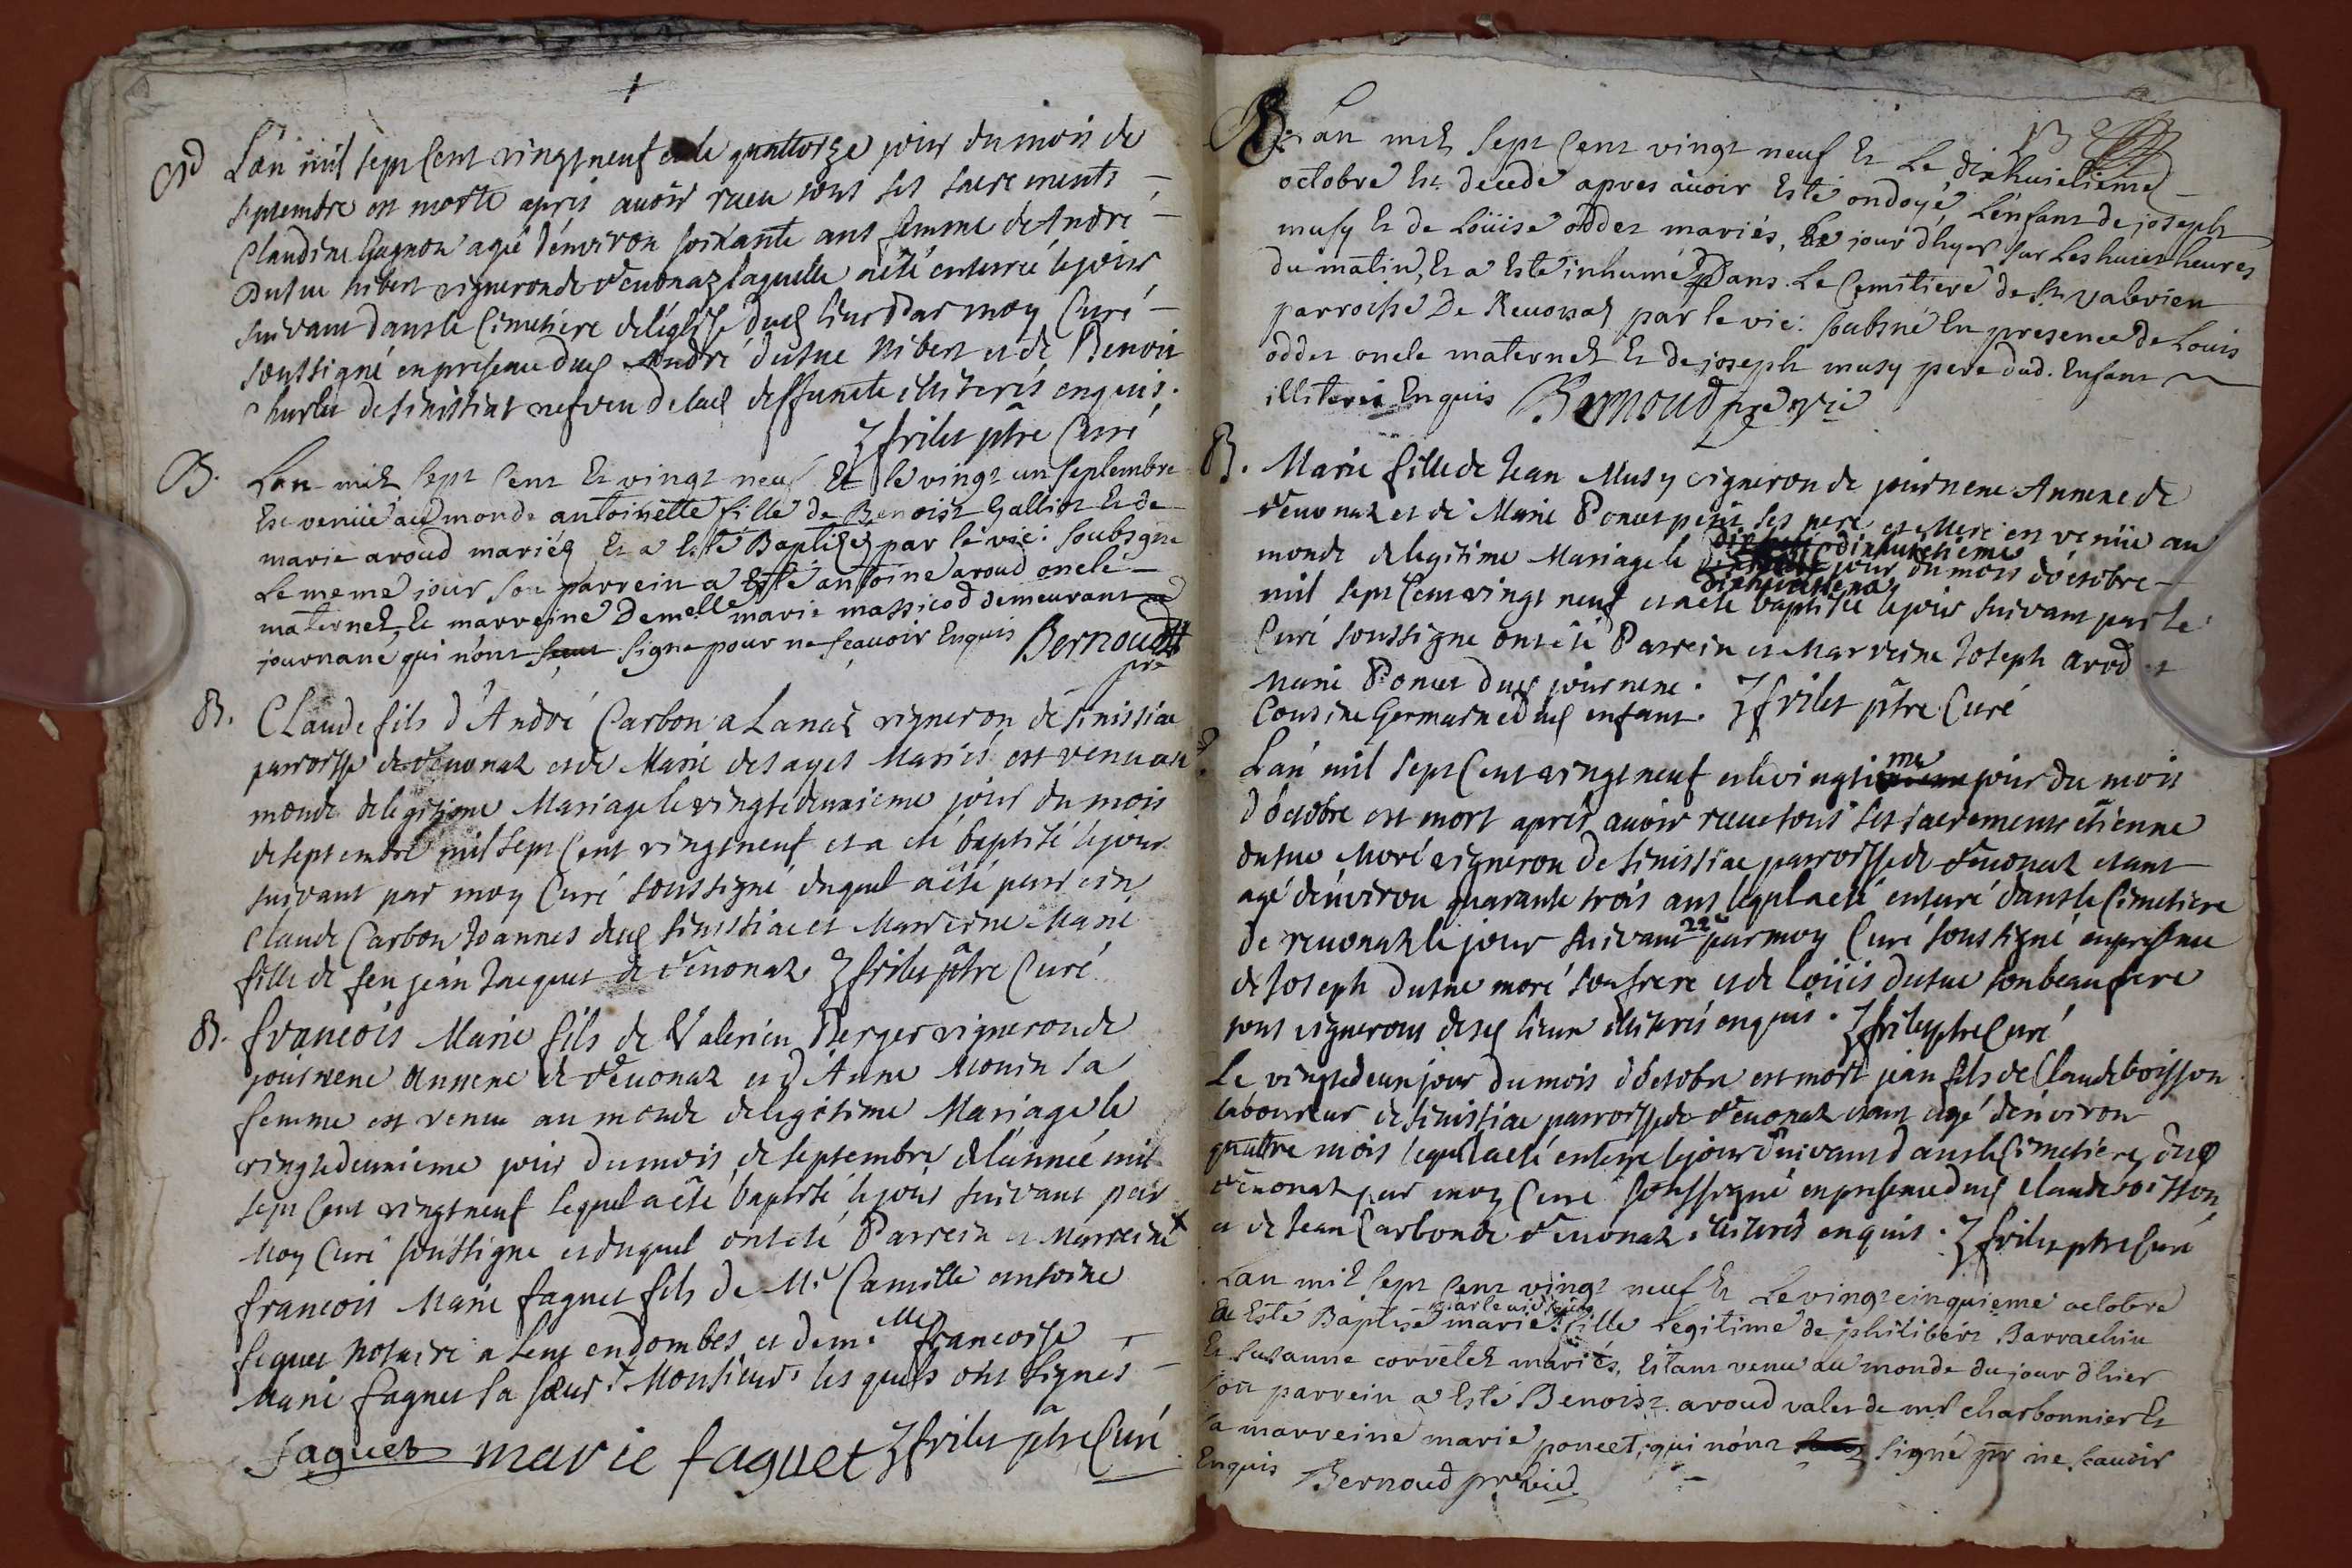 L'an mil sept cent vingt neuf et le quattorze jour du mois de
septembre est morte apres avoir receu tous ses sacrements
Claudine Gagnon agée d'environ soixante ans femme de André
Dusue hibert vigneron de Revonaz laquelle a été enterrée le jour
suivant dans le Cimetiere de l'église dud lieu par moy Curé
soussigné en presence dud André dusue hibert et de Benoit
Charles de simissiat nefveu de lad deffuncte illiterés enquis.
frilet ptre Curé
B. Lan mil sept cent et vingt neuf Et le vingt un septembre
Est venüe au monde antoinette fille de Benoist Galliot et de
marie aroud mariés et a Esté Baptisés par le vic: soubsigne
Le meme jour son parrein a Esté antoine aroud oncle
maternel, et marreine Demelle marie massicod demeurant a
journané qui n'ont signe pour ne scavoir Enquis Bernoud
pre
B. Claude fils d'André Carbon a Lanaz vigneron de simissiac
parroisse de Revonaz et de Marie desages Mariés est venu au
monde de legitime Mariage le vingtedeuxieme jour du mois
de septembre mil sept cent vingt neuf et a été baptisé le jour
suivant par moy Curé soussigné duquel a été parrein
Claude Carbon Joannes dud simissiac et Marreine Marie
fille de feu jean Jacquet de Revonaz frilet ptre Curé
B. francois Marie fils de Valerien Berger vigneron de
journene Annexe de Revonaz et d'Anne Monin sa
femme est venu au monde de legitime Mariage le
vingtedeuxieme jour du mois de septembre de l'année mil
sept cent vingt neuf lequel a été baptisé le jour suivant par
Moy Curé soussigne et duquel ont été Parrein et Marreine
francois Marie faguet fils de Mr. Camille antoine
faguet Notaire a Lent en dombes et demelle francoise
Marie faguet sa sœur Monsieur lesquels ont signés
faguet marie faguet frilet ptre Curé
13e
Lan mil sept cent vingt neuf et Le dixhuictieme
octobre Est decedé apres avoir Esté ondoyé L'enfant de joseph
musy et de Loüise oddet mariés, Le jour d'hyer sur Les huict heures
du matin, Et a Esté inhumé Dans Le Cemitiere de St valerien
parroisse De Revonas par le vic: soubsné En presence de Louis
oddet oncle maternel Et de joseph musy pere dud. Enfant
illiteres Enquis Bernoud pre vic
B. Marie fille de Jean Musy vigneron de journene Annexe de
Revonaz et de Marie Poncet petit ses pere et Mere est venüe au
monde de legitime Mariage le dixhuictieme jour du mois d'octobre
mil sept cent vingt neuf et a été baptisée le jour suivant par le
Curé soussigne ont été Parrein et Marreine Joseph arod et
Marie Poncet dud journene.
Cousine Germaine dud enfant. frilet ptre Curé
L'an mil sept cent vingt neuf et le vingtieme jour du mois
d'octobre est mort apres avoir receu tous ses sacrements etienne
dusue Moré vigneron de simissiac parroisse de Revonaz etant
agé d'environ quarante trois ans lequel a été enterré dans le Cimetiere
de revonaz le jour suivant 22e par moy Curé soussigné en presence
de Joseph Dusue moré son frere et de Loüis dusue son beaufrere
tous vignerons desd lieux illiterés enquis. frilet ptre Curé
Le vingtedeux jour du mois d'octobre est mort jean fils de Claude boisson
laboureur de simissiac parroisse de Revonaz etant agé d'environ
quattre mois lequel a été enterré le jour suivant dans le Cimetiere dud
Revonaz par moy Curé soussigné en presence dud Claude boisson
et de Jean Carbon de Revonaz. illiterés enquis. frilet ptre Curé
Lan mil sept cent vingt neuf Et Le vingt cinquieme octobre
a Esté Baptisé par le vic soubs marie fille Legitime de philibért Barrachin
Et susanne correlet mariés, Estant venu au monde du jour d'hier
son parrein a Esté Benoist aroud valet de mr charbonnier Et
sa marreine marie poncet, qui n'ont signé pr ne scavoir
Enquis Bernoud pre vic